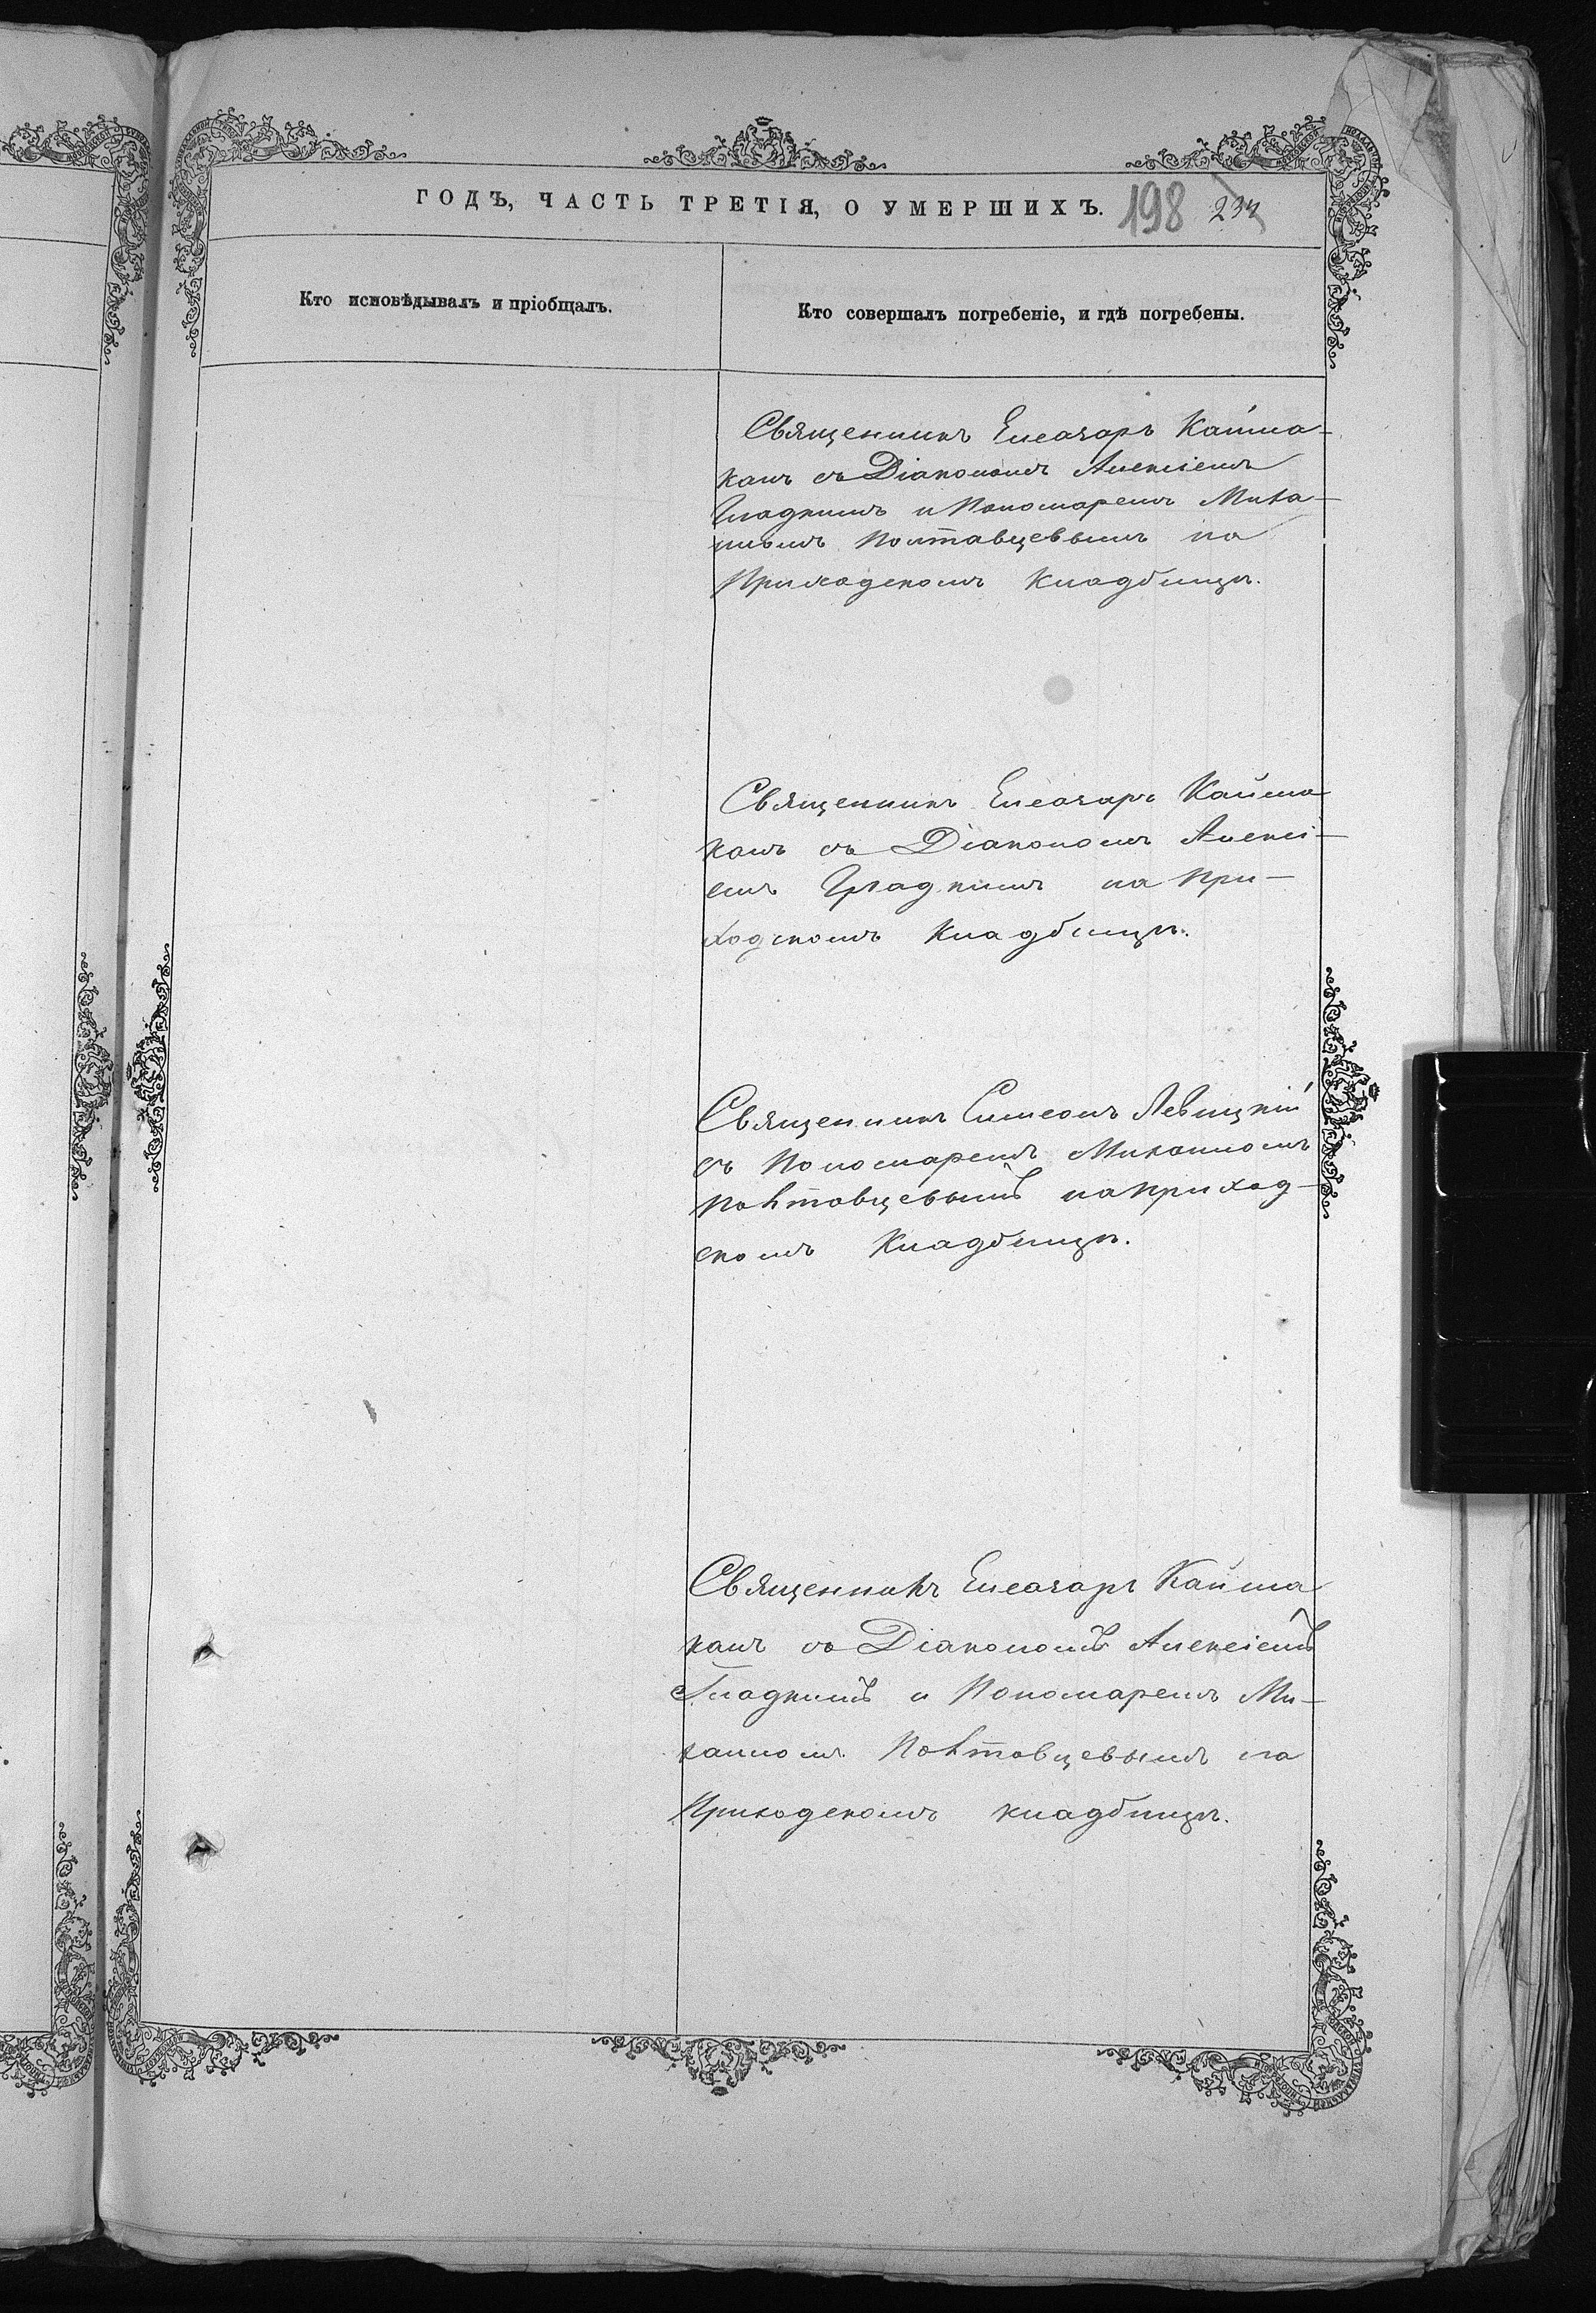 ГОДЪ, ЧАСТЬ ТРЕТІЯ, О УМЕРШИХЪ. 198 234
Кто исповѣдывалъ и пріобщалъ.
Кто совершалъ погребеніе, и гдѣ погребены.
Священникъ Елеазаръ Кайма-
канъ съ Діакономъ Алексіемъ
Гладкимъ и Пономаремъ Миха-
иломъ Полтавцевымъ на
Приходскомъ Кладбищѣ.
Священникъ Елеазаръ Кайма
канъ съ Діакономъ Алексі-
емъ Гладкимъ на При-
ходскомъ Кладбищѣ.
Священникъ Симеонъ Левицкій
съ Пономаремъ Михаиломъ
Полтавцевымъ на Приход-
скомъ Кладбищѣ.
Священникъ Елеазаръ Кайма
канъ съ Діакономъ Алексіемъ
Гладкимъ и Пономаремъ Ми-
хаиломъ Полтавцевымъ на
Приходскомъ кладбищѣ.